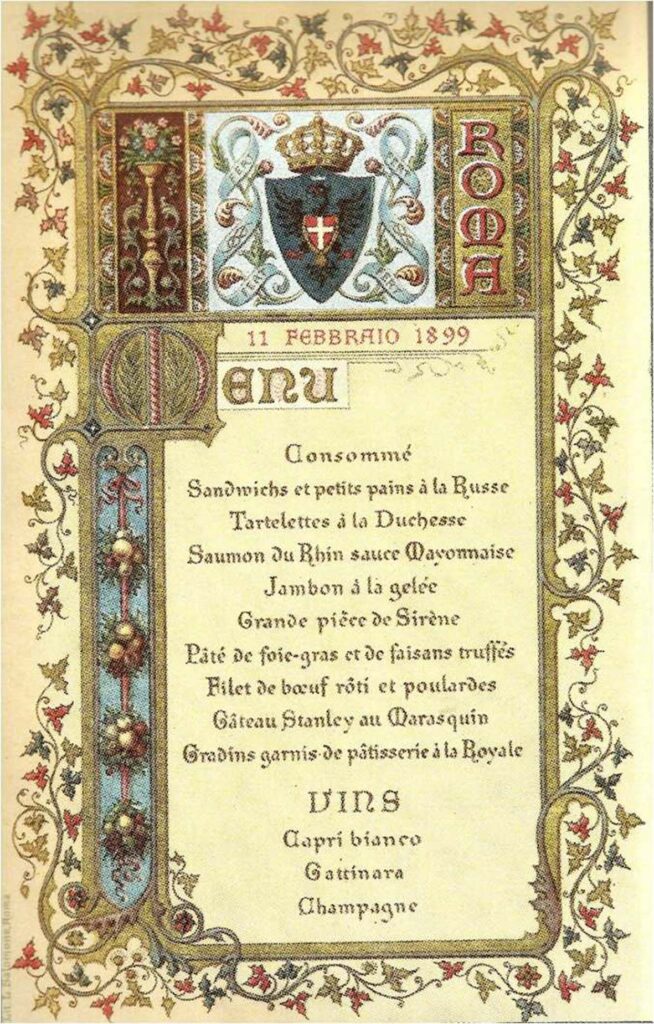 FERT
FERT
FERT
FERT
ROMA
11 FEBBRAIO 1899
MENU
Consommé
Sandwichs et petits pains à la Russe
Tartelettes à la Duchesse
Saumon du Rhin sauce Mayonnaise
Jambon à la gelée
Grande pièce de Sirène
Pâté de foie-gras et de faisans truffés
Filet de bœuf rôti et poulardes
Gâteau Stanley au Marasquin
Gradins garnis de pâtisserie à la Royale
VINS
Capri bianco
Gattinara
Champagne